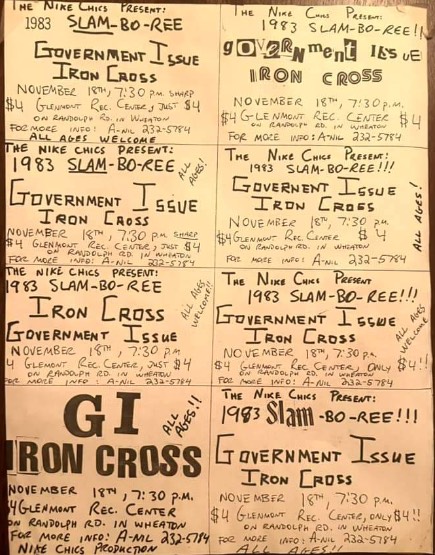 THE NIKE CHICS PRESENT:
1983 SLAM-BO-REE
GOVERNMENT ISSUE
IRON CROSS
NOVEMBER 18TH, 7:30 P.M. SHARP
$4 GLENMONT REC. CENTER, JUST $4
ON RANDOLPH RD. IN WHEATON
FOR MORE INFO: A-NIL 232-5784
ALL AGES WELCOME
THE NIKE CHICS PRESENT:
1983 SLAM-BO-REE!!
GOVERNMENT ISSUE
IRON CROSS
NOVEMBER 18TH, 7:30 P.M.
$4 GLENMONT REC. CENTER $4
ON RANDOLPH RD. IN WHEATON
FOR MORE INFO: A-NIL 232-5784
THE NIKE CHICS PRESENT:
1983 SLAM-BO-REE
ALL AGES!
GOVERNMENT ISSUE
IRON CROSS
NOVEMBER 18TH, 7:30 P.M. SHARP
$4 GLENMONT REC. CENTER, JUST $4
ON RANDOLPH RD. IN WHEATON
FOR MORE INFO: A-NIL 232-5784
THE NIKE CHICS PRESENT:
1983 SLAM-BO-REE!!!
GOVERNENT ISSUE
IRON CROSS
NOVEMBER 18TH, 7:30 P.M.
$4 GLENMONT REC. CENTER $4
ON RANDOLPH RD. IN WHEATON
FOR MORE INFO: A-NIL 232-5784
ALL AGES!
THE NIKE CHICS PRESENT:
1983 SLAM-BO-REE
IRON CROSS
ALL AGES
WELCOME!!
GOVERNMENT ISSUE
NOVEMBER 18TH, 7:30 P.M.
4 GLEMONT REC. CENTER, JUST $4
ON RANDOLPH RD. IN WHEATON
FOR MORE INFO: A-NIL 232-5784
THE NIKE CHICS PRESENT
1983 SLAM-BO-REE!!!
GOVERNMENT ISSUE
IRON CROSS
ALL AGES
WELCOME!
NOVEMBER 18TH, 7:30 P.M.
$4 GLENMONT REC. CENTER, ONLY $4!!
ON RANDOLPH RD. IN WHEATON
FOR MORE INFO: A-NIL 232-5784
GI
ALL AGES!!
IRON CROSS
NOVEMBER 18TH, 7:30 P.M.
$4 GLENMONT REC. CENTER
ON RANDOLPH RD. IN WHEATON
FOR MORE INFO: A-NIL 232-5784
NIKE CHICS PRODUCTION
THE NIKE CHICS PRESENT:
1983 Slam-BO-REE!!!
GOVERNMENT ISSUE
IRON CROSS
NOVEMBER 18TH, 7:30 P.M.
$4 GLENMONT REC. CENTER, ONLY $4!!
ON RANDOLPH RD. IN WHEATON
FOR MORE INFO: A-NIL 232-5784
ALL AGES!!